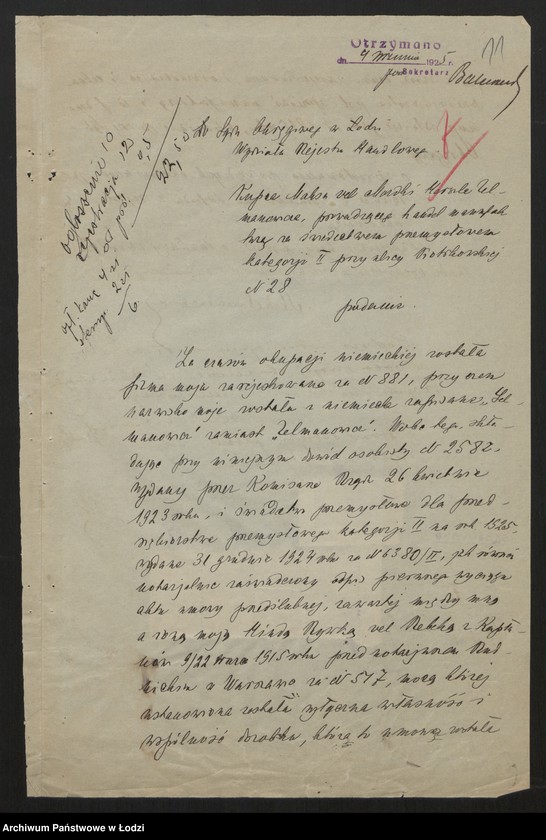 Otrzymano
dn. 4 192 5 r.
Sekretarz
11
ogłoszenie 10
rejestracja 12
od pod. 0,5
22,50
opł. kanc 4 zł
stemp. 2 zł
6
Do Sądu Okręgowego w Łodzi
Wydziału Rejestru Handlowego
Kupca Maksa vel Moszka Hersza Zel-
manowicza, prowadzącego handel manufak-
turą za świadectwem przemysłowem
kategorji II przy ulicy Piotrkowskiej
N 28
podanie.
Za czasów okupacji niemieckiej została
firma moja zarejestrowana za N 881, przy czem
nazwisko moje zostało z niemiecka zapisane „Sel-
manowicz" zamiast „Zelmanowicz". Wobec tego skła-
dając przy niniejszym dowód osobisty N 2582,
wydany przez Komisarza Rządu 26 kwietnia
1923 roku, i świadectwo przemysłowe dla przed-
siębiorstwa przemysłowego kategorji II na rok 1925
wydane 31 grudnia 1924 roku za N 6380/II, jak również
notarjalnie zaświadczony odpis pierwszego wyciągu
aktu umowy przedślubnej, zawartej między mną
a żoną moją Hindą Rywką vel Rebeką z Kapła-
nów 9/22 marca 1915 roku przed notarjuszem
w Warszawie za N 517, mocą której
ustanowiona została wyłączna własność i
wspólność dorobku, którą to umową została
Archiwum Państwowe w Łodzi